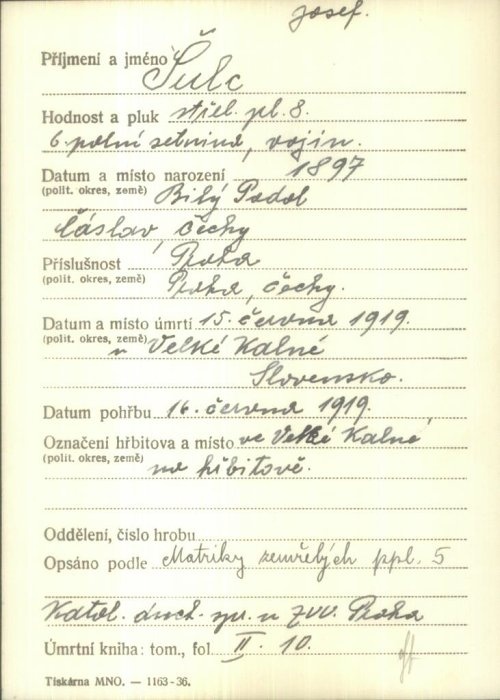 Josef.
Příjmení a jméno Šulc
Hodnost a pluk střel. pl. 8.
6. polní setnina, vojín.
Datum a místo narození 1897
(polit. okres, země) Bílý Podol
Čáslav, Čechy
Příslušnost Praha
(polit. okres, země) Praha, Čechy.
Datum a místo úmrtí 15. června 1919.
(polit. okres, země) u Velké Kalné
Slovensko.
Datum pohřbu 16. června 1919.
Označení hřbitova a místo ve Velké Kalné
(polit. okres, země) na hřbitově.
Oddělení, číslo hrobu
Opsáno podle Matriky zemřelých ppl. 5
Katol. duch. spr. u ZVV. Praha
Úmrtní kniha: tom., fol. II. 10.
Tiskárna MNO. — 1163-36.